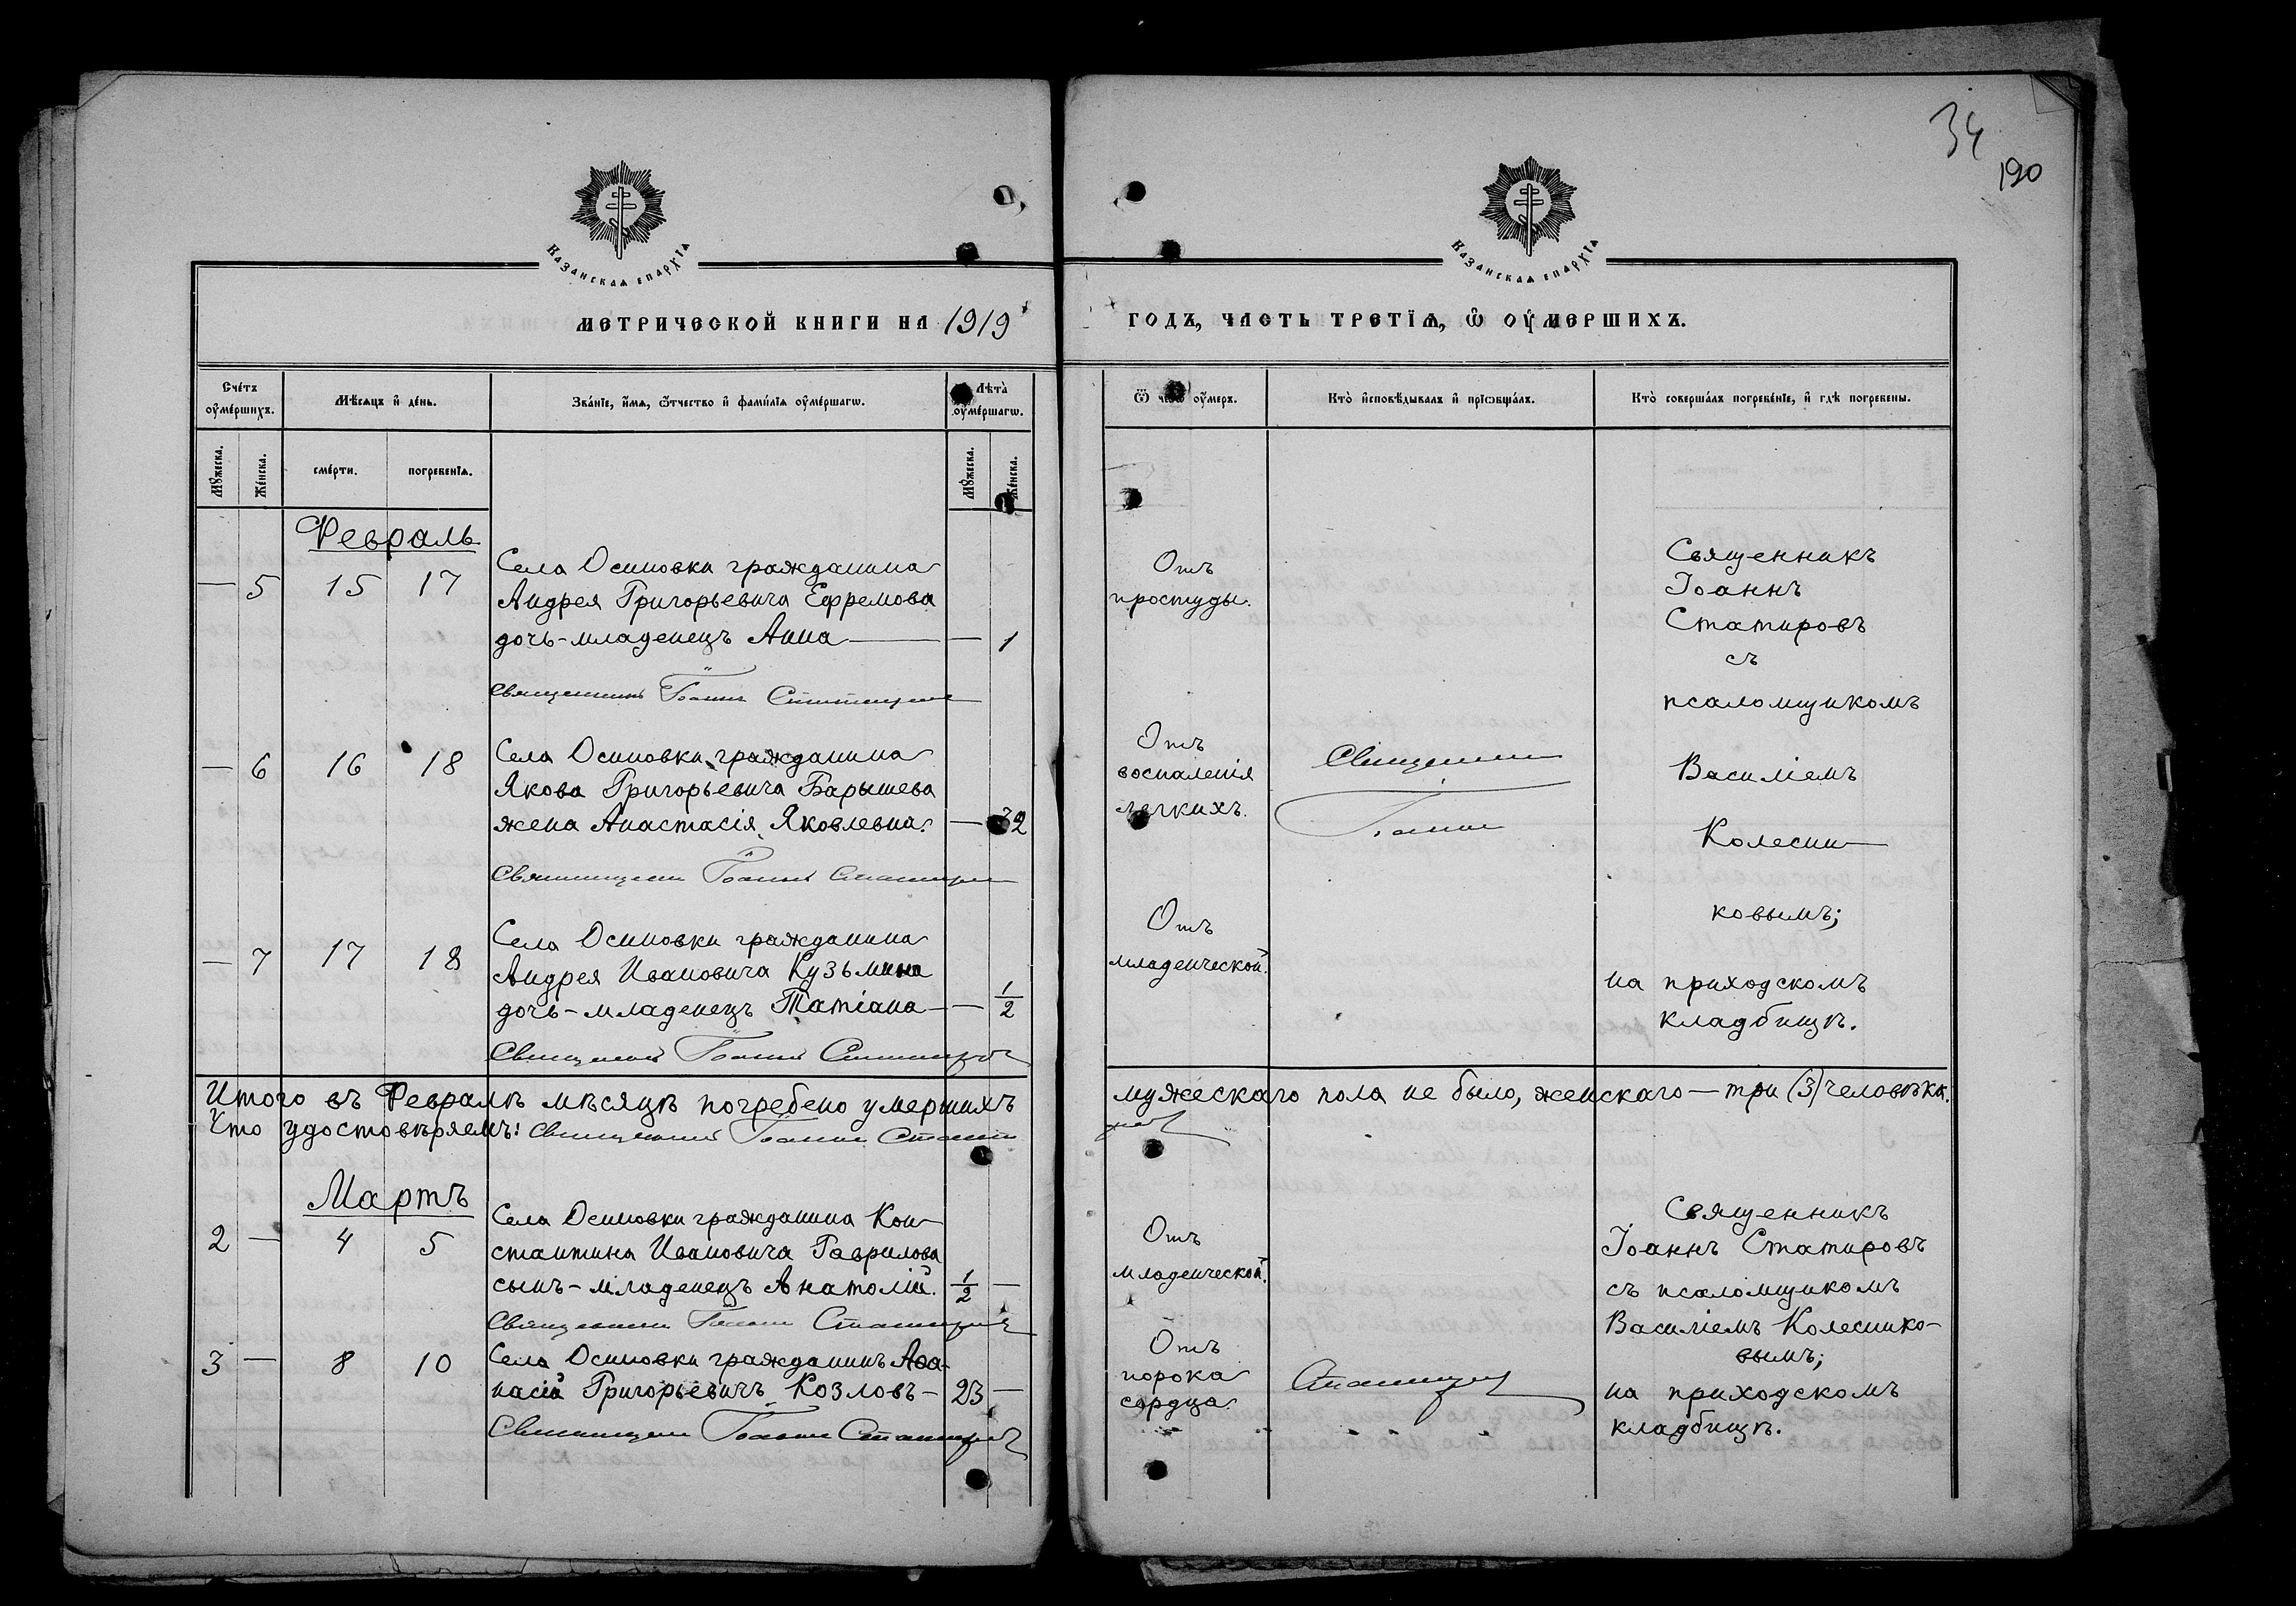 34
190
Казанская епархїѧ
Казанская епархїѧ
МЕТРИЧЕСКОЙ КНИГИ НА 1919
ГОДЪ, ЧАСТЬ ТРЕТЇѦ, Ѡ ОУМЕРШИХЪ.
Счетъ оумершихъ.
Мѣсяцъ и день.
Званїе, имя, ѿчество и фамилїя оумершагѡ.
Лѣта оумершагѡ.
Мужеска.
Женска.
смерти.
погребенїѧ.
Мужеска.
Женска.
Ѿ чегѡ оумеръ.
Кто исповѣдывалъ и прїѡбщалъ.
Кто совершалъ погребенїе, и гдѣ погребены.
Февраль
— 5 15 17
Села Осиновки гражданина
Андрея Григорьевича Ефремова
дочь-младенецъ Анна — — 1
Священникъ Іоаннъ Статировъ
Отъ
простуды.
— 6 16 18
Села Осиновки гражданина
Якова Григорьевича Барышева
жена Анастасія Яковлевна. — 32
Священникъ Іоаннъ Статировъ
Отъ
воспаленія
легкихъ.
Священникъ
Іоаннъ
— 7 17 18
Села Осиновки гражданина
Андрея Ивановича Кузьмина
дочь-младенецъ Татіана — — 1/2
Священникъ Іоаннъ Статировъ
Отъ
младенческой.
Священникъ
Іоаннъ
Статировъ
съ
псаломщикомъ
Василіемъ
Колесни-
ковымъ;
на приходскомъ
кладбищѣ.
Итого въ Февралѣ мѣсяцѣ погребено умершихъ мужескаго пола не было, женскаго — три (3) человѣка.
Что удостовѣряемъ: Священникъ Іоаннъ Статировъ
Мартъ
2 — 4 5
Села Осиновки гражданина Кон-
стантина Ивановича Гаврилова
сынъ-младенецъ Анатолій. 1/2 —
Священникъ Іоаннъ Статировъ
Отъ
младенческой.
3 — 8 10
Села Осиновки гражданинъ Аѳа-
насій Григорьевичъ Козловъ — 23 —
Священникъ Іоаннъ Статировъ
Отъ
порока
сердца
Статировъ
Священникъ
Іоаннъ Статировъ
съ псаломщикомъ
Василіемъ Колеснико-
вымъ;
на приходскомъ
кладбищѣ.